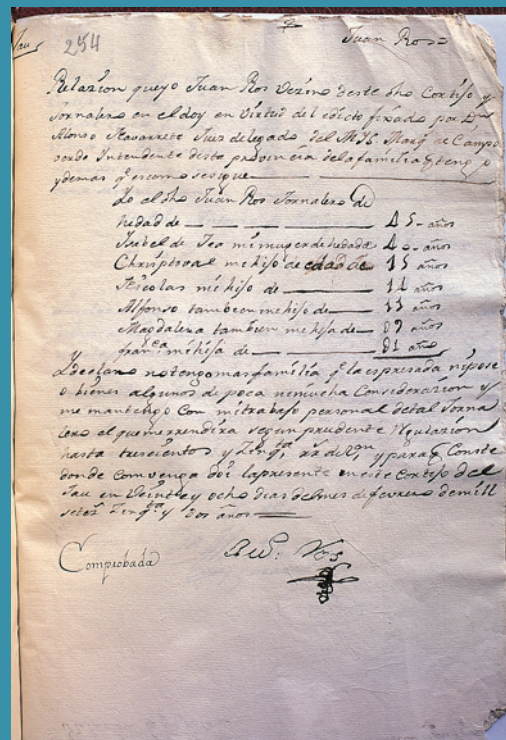 Jau 254 Juan Ros
Relazion que yo Juan Ros Vezino deste dho Cortijo y
Jornalero en el doy en Virtud del edicto fixado por Dn
Alonso Navarrete Juez delegado del M. Y. S. Marqs de Campo
verde Intendente desta provincia de la familia q tengo
y demas q en como se sigue
Yo el dho Juan Ros Jornalero de
hedad de 45 - años
Isabel de Tea mi muger de hedad 40 - años
Christoval mi hijo de edad de 15 años
Nicolas mi hijo de 12 años
Alfonso tambien mi hijo de 11 años
Magdalena tambien mi hija de 07 años
franca mi hija de 01 año
Y declaro no tengo mas familia q la espresada ni pose
o bienes algunos de poca ni mucha Consideracion y
me mantengo Con mi trabajo personal de tal Jorna
lero el que me rrendira segun prudente Regulazion
hasta trescientos y Zinqta rrs de Vn, y para q Conste
donde Convenga doi la presente en este Cortijo del
Jau en Veinte y ocho dias del mes de febrero de mill
setezs Zinqta y dos años
Comprobada